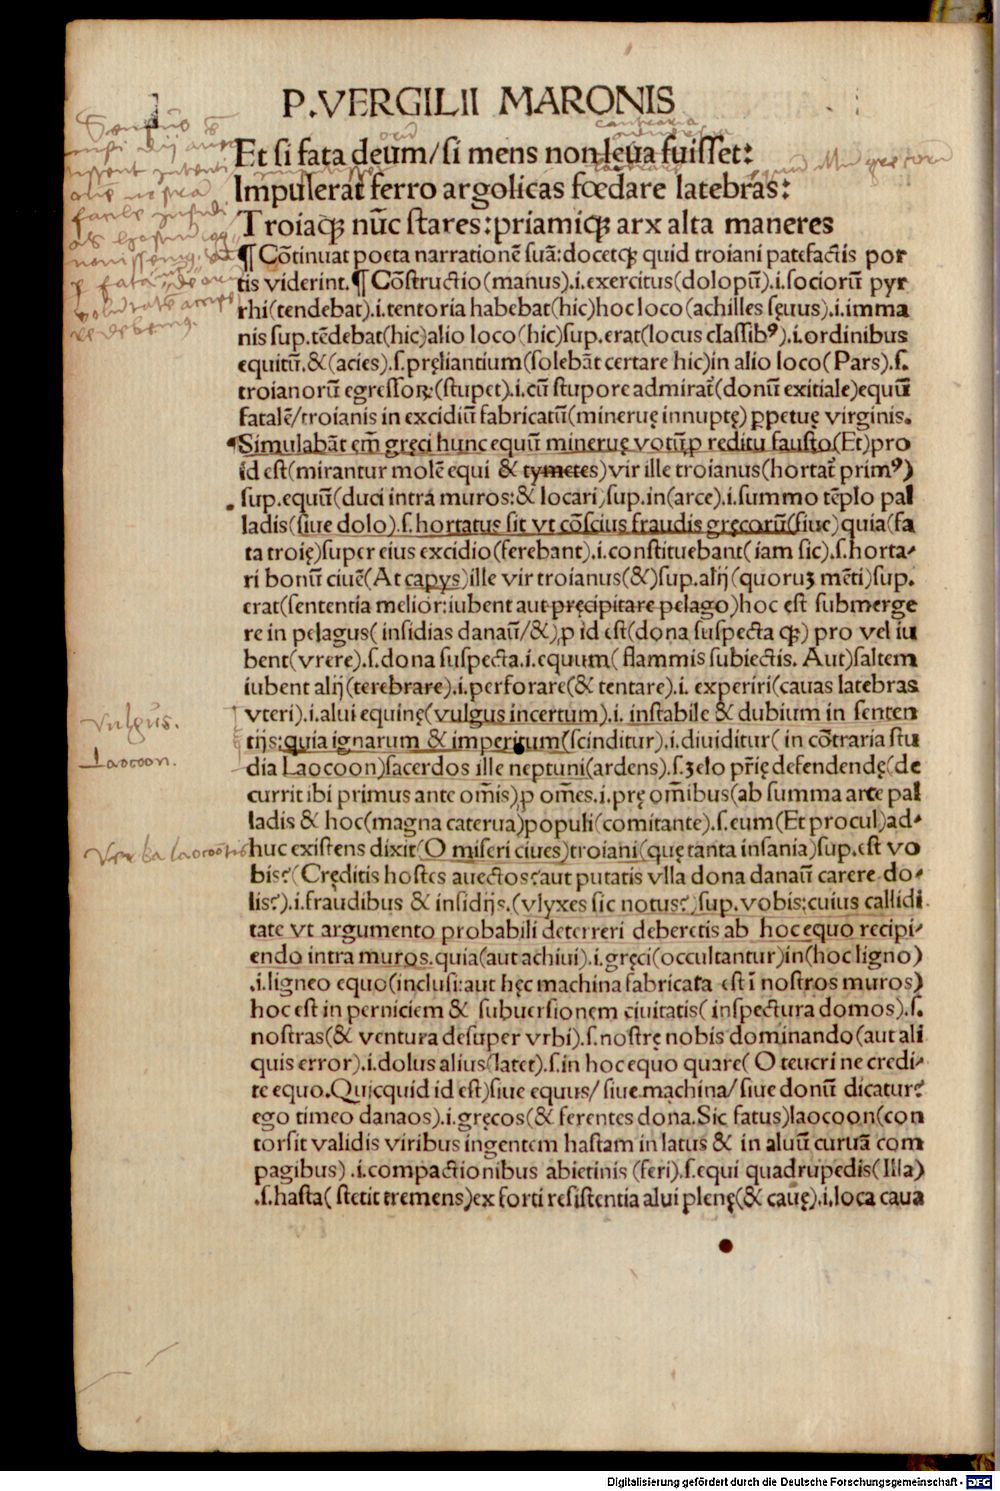 P.VERGILII MARONIS
Et si fata deum/si mens non leua fuisset:
Impulerat ferro argolicas fœdare latebras:
Troiaqꝫ nūc stares:priamiqꝫ arx alta maneres
¶ Cōtinuat poeta narrationē suā:docetqꝫ quid troiani patefactis por
tis viderint.¶ Cōstructio(manus).i.exercitus(dolopū).i.sociorū pyr
rhi(tendebat).i.tentoria habebat(hic)hoc loco(achilles sęuus).i.imma
nis sup.tēdebat(hic)alio loco(hic)sup.erat(locus classibꝰ).i.ordinibus
equitū.&(acies).s.pręliantium(solebāt certare hic)in alio loco(Pars).s.
troianorū egressoꝝ(stupet).i.cū stupore admirat᷑(donū exitiale)equū
fatalē/troianis in excidiū fabricatū(mineruę innuptę) ꝑpetuę virginis.
Simulabāt em̄ gręci hunc equū mineruę votū ꝓ reditu fausto(Et)pro
id est(mirantur molē equi & tymetes)vir ille troianus(hortat᷑ primꝰ)
sup.equū(duci intra muros:& locari)sup.in(arce).i.summo tēplo pal
ladis(siue dolo).s.hortatus sit vt cōscius fraudis gręcorū(siue)quia(fa
ta troię)super eius excidio(ferebant).i.constituebant(iam sic).s.horta⸗
ri bonū ciuē(At capys)ille vir troianus(&)sup.alij(quoruꝫ mēti)sup.
erat(sententia melior:iubent aut pręcipitare pelago)hoc est submerge
re in pelagus(insidias danaū/&)ꝓ id est(dona suspecta qꝫ) pro vel iu
bent(vrere).s.dona suspecta.i.equum(flammis subiectis. Aut)saltem
iubent alij(terebrare).i.perforare(& tentare).i. experiri(cauas latebras
vteri).i.alui equinę(vulgus incertum).i. instabile & dubium in senten
tijs:quia ignarum & imperitum(scinditur).i.diuiditur(in cōtraria stu
dia Laocoon)sacerdos ille neptuni(ardens).s.ꝫelo pr̄ię defendendę(de
currit ibi primus ante om̄is)ꝓ om̄es.i.prę om̄ibus(ab summa arce pal
ladis & hoc(magna caterua)populi(comitante).s.eum(Et procul)ad⸗
huc existens dixit(O miseri ciues)troiani(quę tanta insania)sup.est vo
bis?(Creditis hostes auectos?aut putatis vlla dona danaū carere do⸗
lis?).i.fraudibus & insidijs.(vlyxes sic notus?)sup.vobis:cuius callidi
tate vt argumento probabili deterreri deberetis ab hoc equo recipi⸗
endo intra muros.quia(aut achiui).i.gręci(occultantur)in(hoc ligno)
.i.ligneo equo(inclusi:aut hęc machina fabricata est ī nostros muros)
hoc est in perniciem & subuersionem ciuitatis(inspectura domos).s.
nostras(& ventura desuper vrbi).s.nostrę nobis dominando(aut ali
quis error).i.dolus alius(latet).s.in hoc equo quare(O teucri ne credi⸗
te equo.Quicquid id est)siue equus/ siue machina/ siue donū dicatur?
ego timeo danaos).i.gręcos(& ferentes dona.Sic fatus)laocoon(con
torsit validis viribus ingentem hastam in latus & in aluū curuā com
pagibus) .i.compactionibus abietinis (feri).s.equi quadrupedis(Illa)
.s.hasta(stetit tremens)ex forti resistentia alui plenę(& cauę).i.loca caua
Vulgus.
Laocoon.
Verba laocoontis
Digitalisierung gefördert durch die Deutsche Forschungsgemeinschaft - DFG